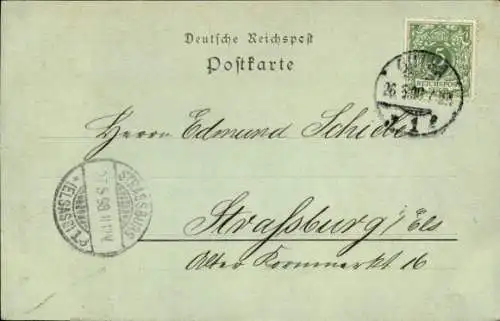 Deutsche Reichspost
Postkarte
5
REICHSPOST
1
Herrn Edmund Schiebel
STRASSBURG
* (ELSASS) *
Strassburg i/Els
Alter Kornmarkt 16